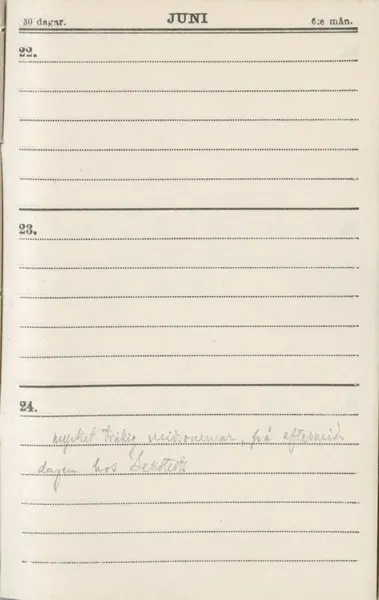 30 dagar. JUNI 6:e mån.
22.
23.
24.
mycket tråkig midsommar, på eftermid-
dagen hos